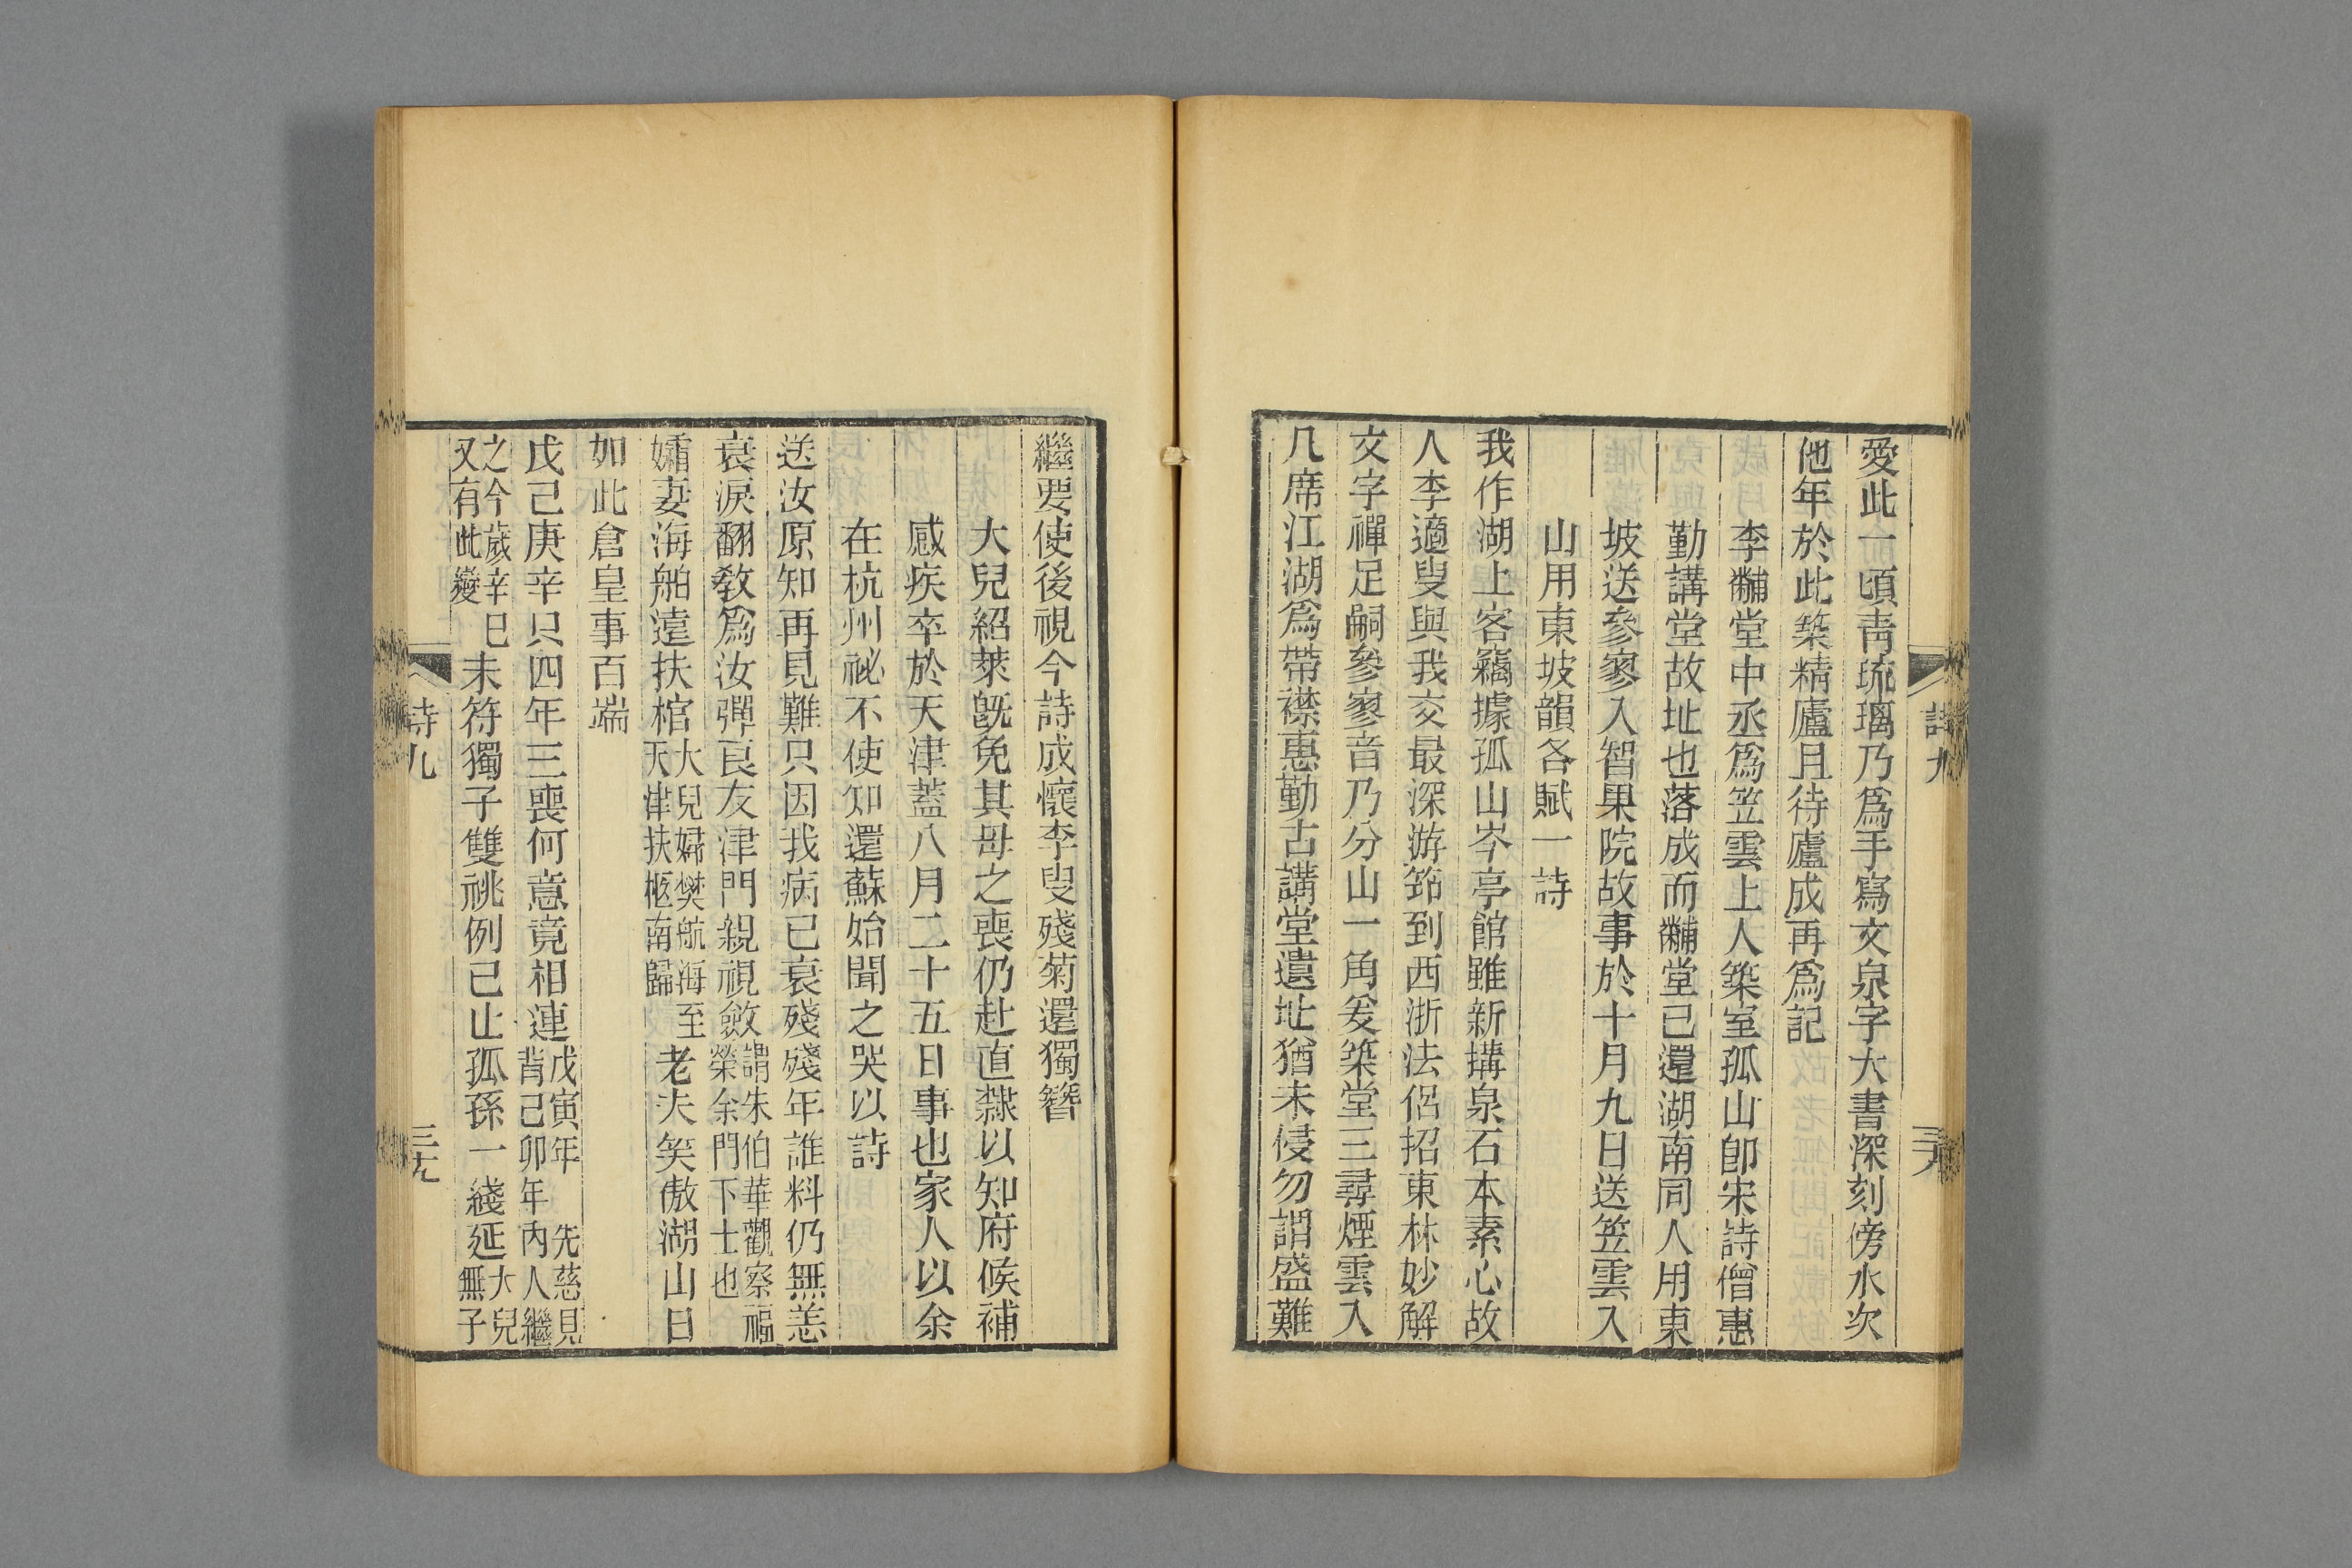 愛此一頃靑琉璃乃爲手寫文泉字大書深刻傍水次
他年於此築精廬且待廬成再爲記
李黼堂中丞爲笠雲上人築室孤山卽宋詩僧惠
勤講堂故址也落成而黼堂已還湖南同人用東
坡送參寥入智果院故事於十月九日送笠雲入
山用東坡韻各賦一詩
我作湖上客竊據孤山岑亭館雖新搆泉石本素心故
人李適叟與我交最深游筇到西浙法侶招東林妙解
文字禪足嗣參寥音乃分山一角爰築堂三尋煙雲入
几席江湖爲帶襟惠勤古講堂遺址猶未侵勿謂盛難
詩九
繼要使後視今詩成懷李叟殘菊還獨簪
大兒紹萊旣免其母之喪仍赴直隸以知府候補
感疾卒於天津蓋八月二十五日事也家人以余
在杭州祕不使知還蘇始聞之哭以詩
送汝原知再見難只因我病已衰殘殘年誰料仍無恙
衰淚翻教爲汝彈良友津門親視斂謂朱伯華觀察福
榮余門下士也
孀妻海舶遠扶棺大兒婦樊航海至
天津扶柩南歸老夫笑傲湖山日
如此倉皇事百端
戊己庚辛只四年三喪何意竟相連戊寅年 先慈見
背己卯年內人繼
之今歲辛巳
又有此變未符獨子雙祧例已止孤孫一綫延大兒
無子
詩九
三九